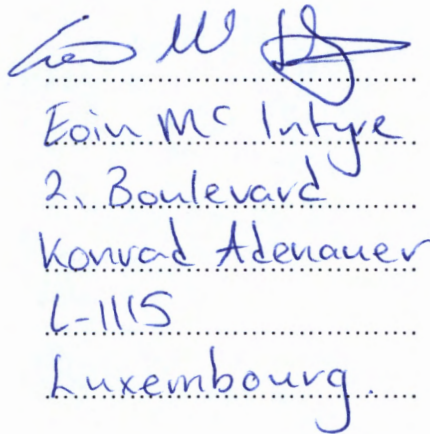 Eoin Mc Intyre
2. Boulevard
Konrad Adenauer
L-1115
Luxembourg.